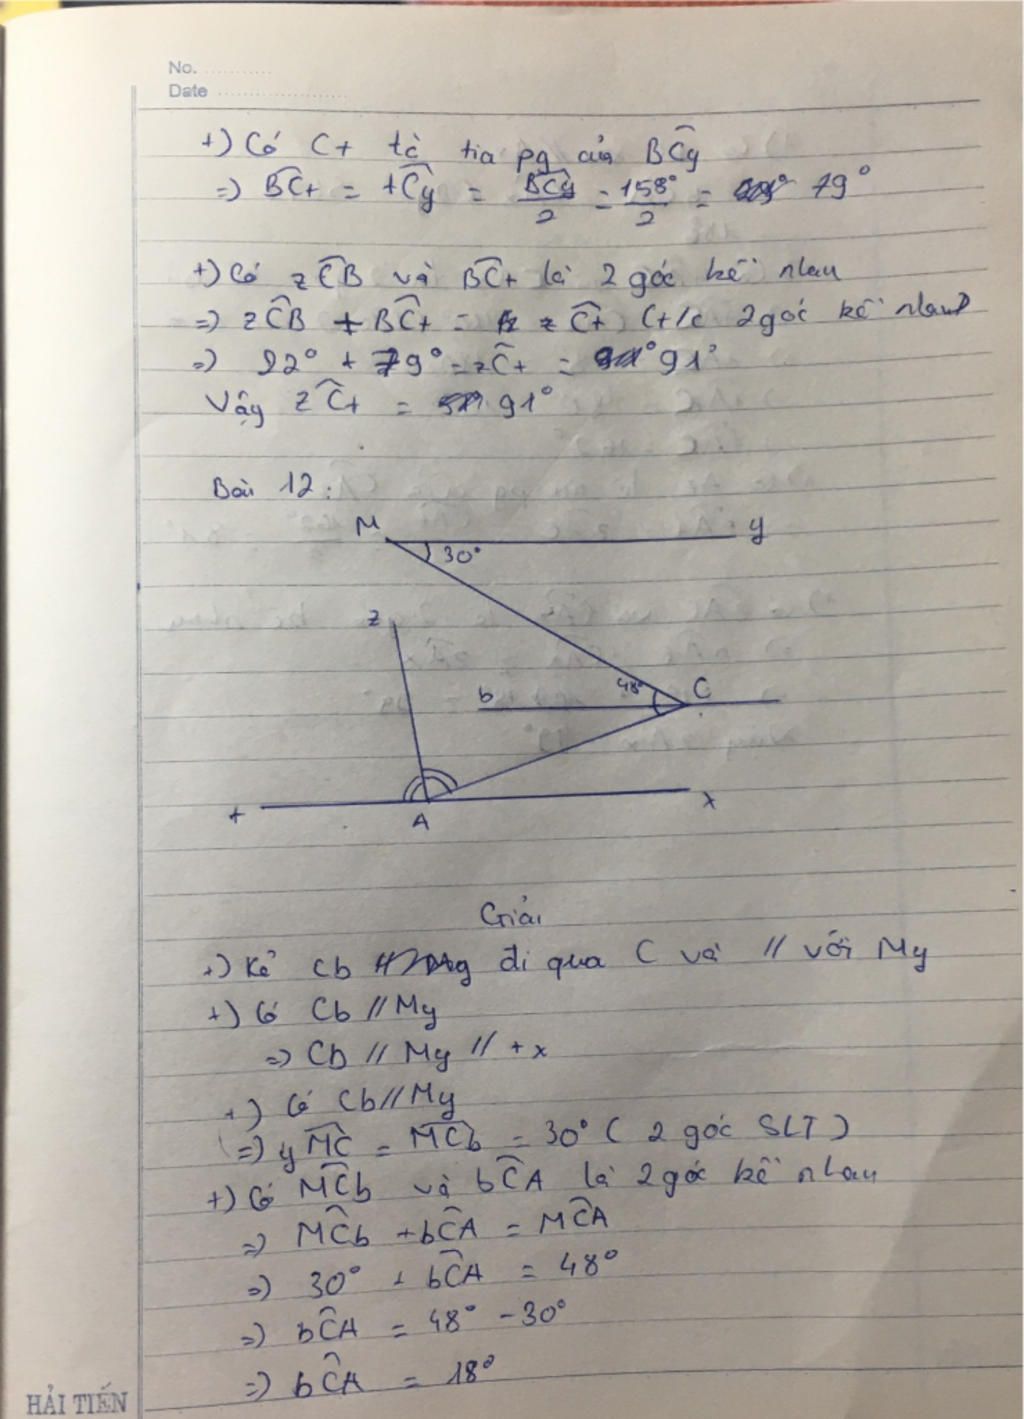 No. ............
Date ......................
+) Có Ct là tia pg của BĈy
=> BĈt = tĈy = BĈy/2 = 158°/2 = 79°
+) Có zĈB và BĈt là 2 góc kề nhau
=> zĈB + BĈt = zĈt ( t/c 2 góc kề nhau)
=> 22° + 79° = zĈt = 91°
Vậy zĈt = 91°
Bài 12:
M y
30°
z
b 48° C
t A x
Giải
+) Kẻ Cb đi qua C và // với My
+) Có Cb // My
=> Cb // My // tx
+) Có Cb // My
=> yM̂C = MĈb = 30° ( 2 góc SLT )
+) Có MĈb và bĈA là 2 góc kề nhau
=> MĈb + bĈA = MĈA
=> 30° + bĈA = 48°
=> bĈA = 48° - 30°
=> bĈA = 18°
HẢI TIẾN